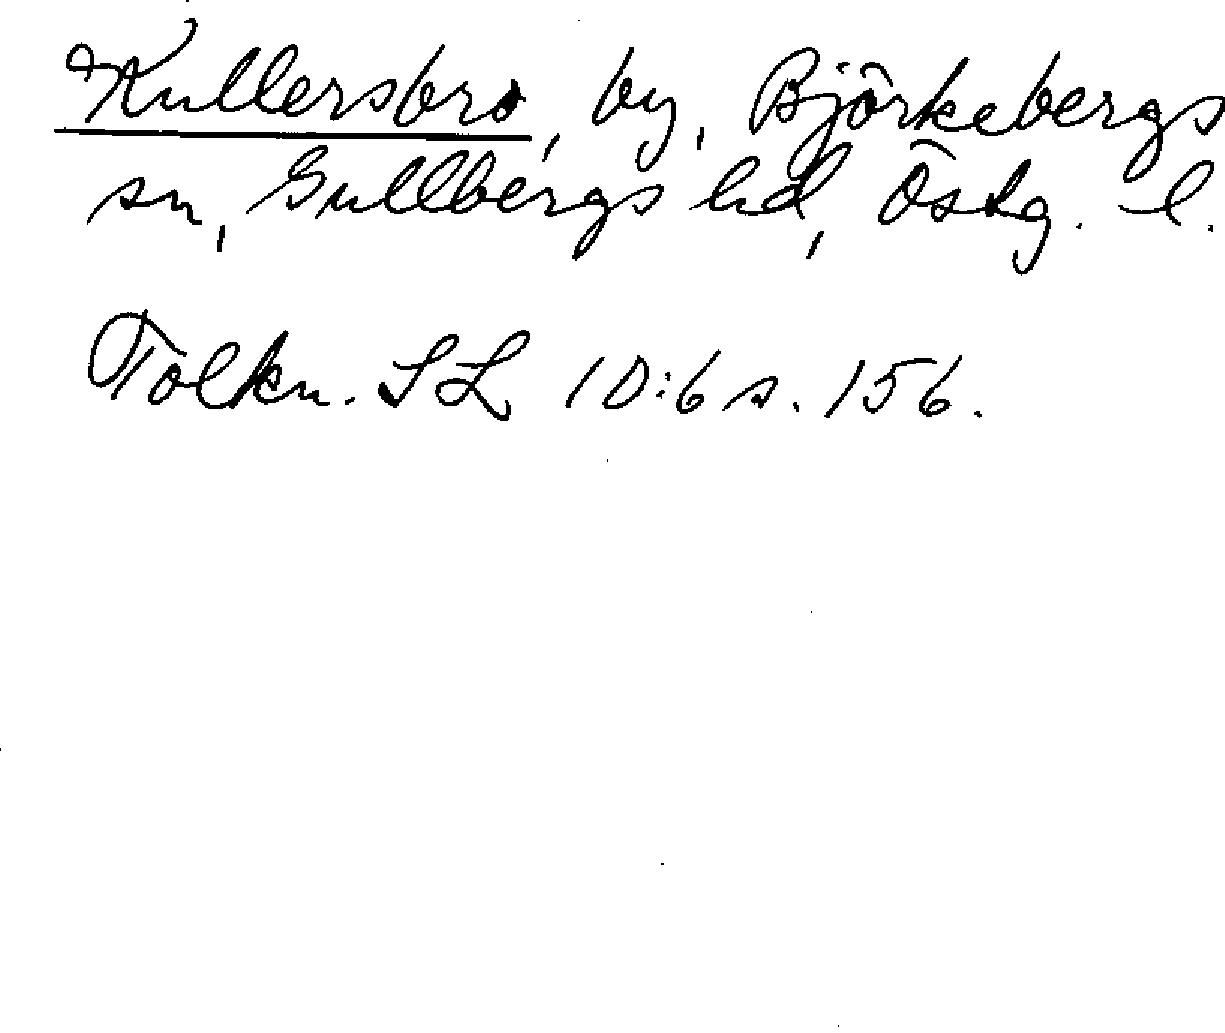 Kullersbro, by, Björkebergs
sn, Gullbergs hd, Östg. l.
Tolkn. SL 10:6 s. 156.